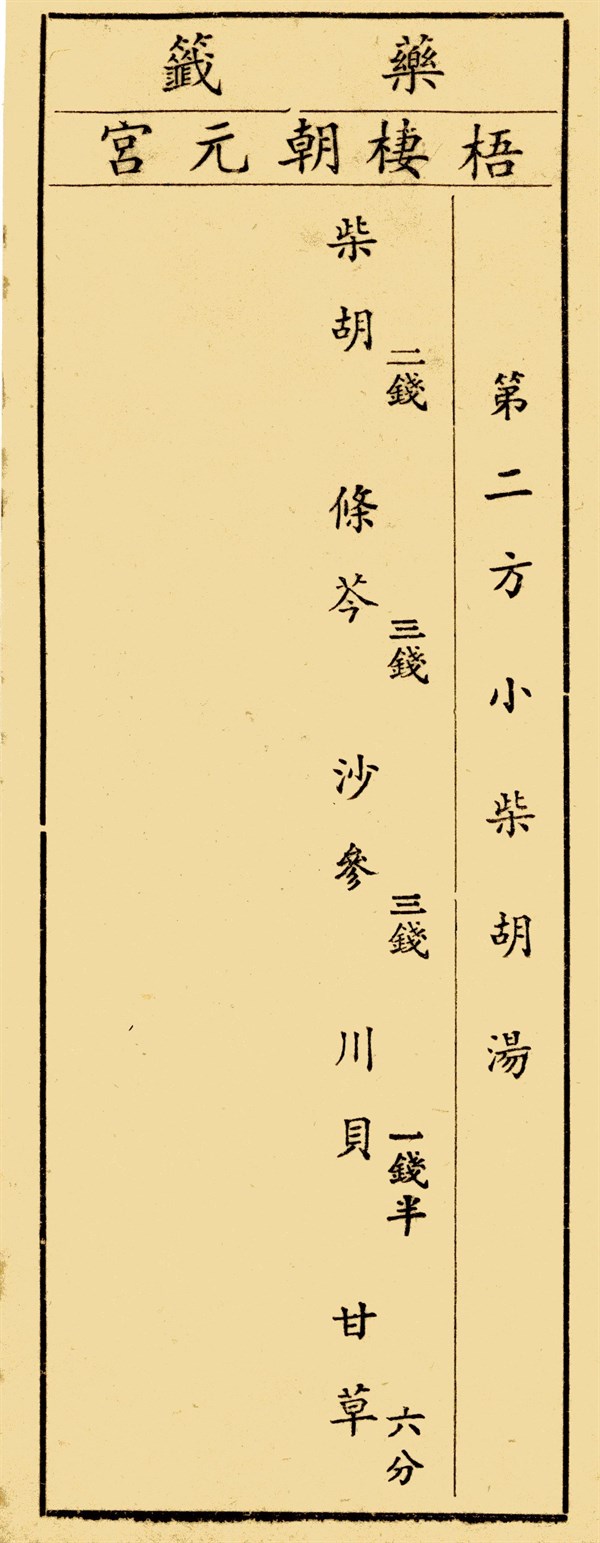 藥籤
梧棲朝元宮
第二方小柴胡湯
柴胡二錢 條芩三錢 沙參三錢 川貝一錢半 甘草六分